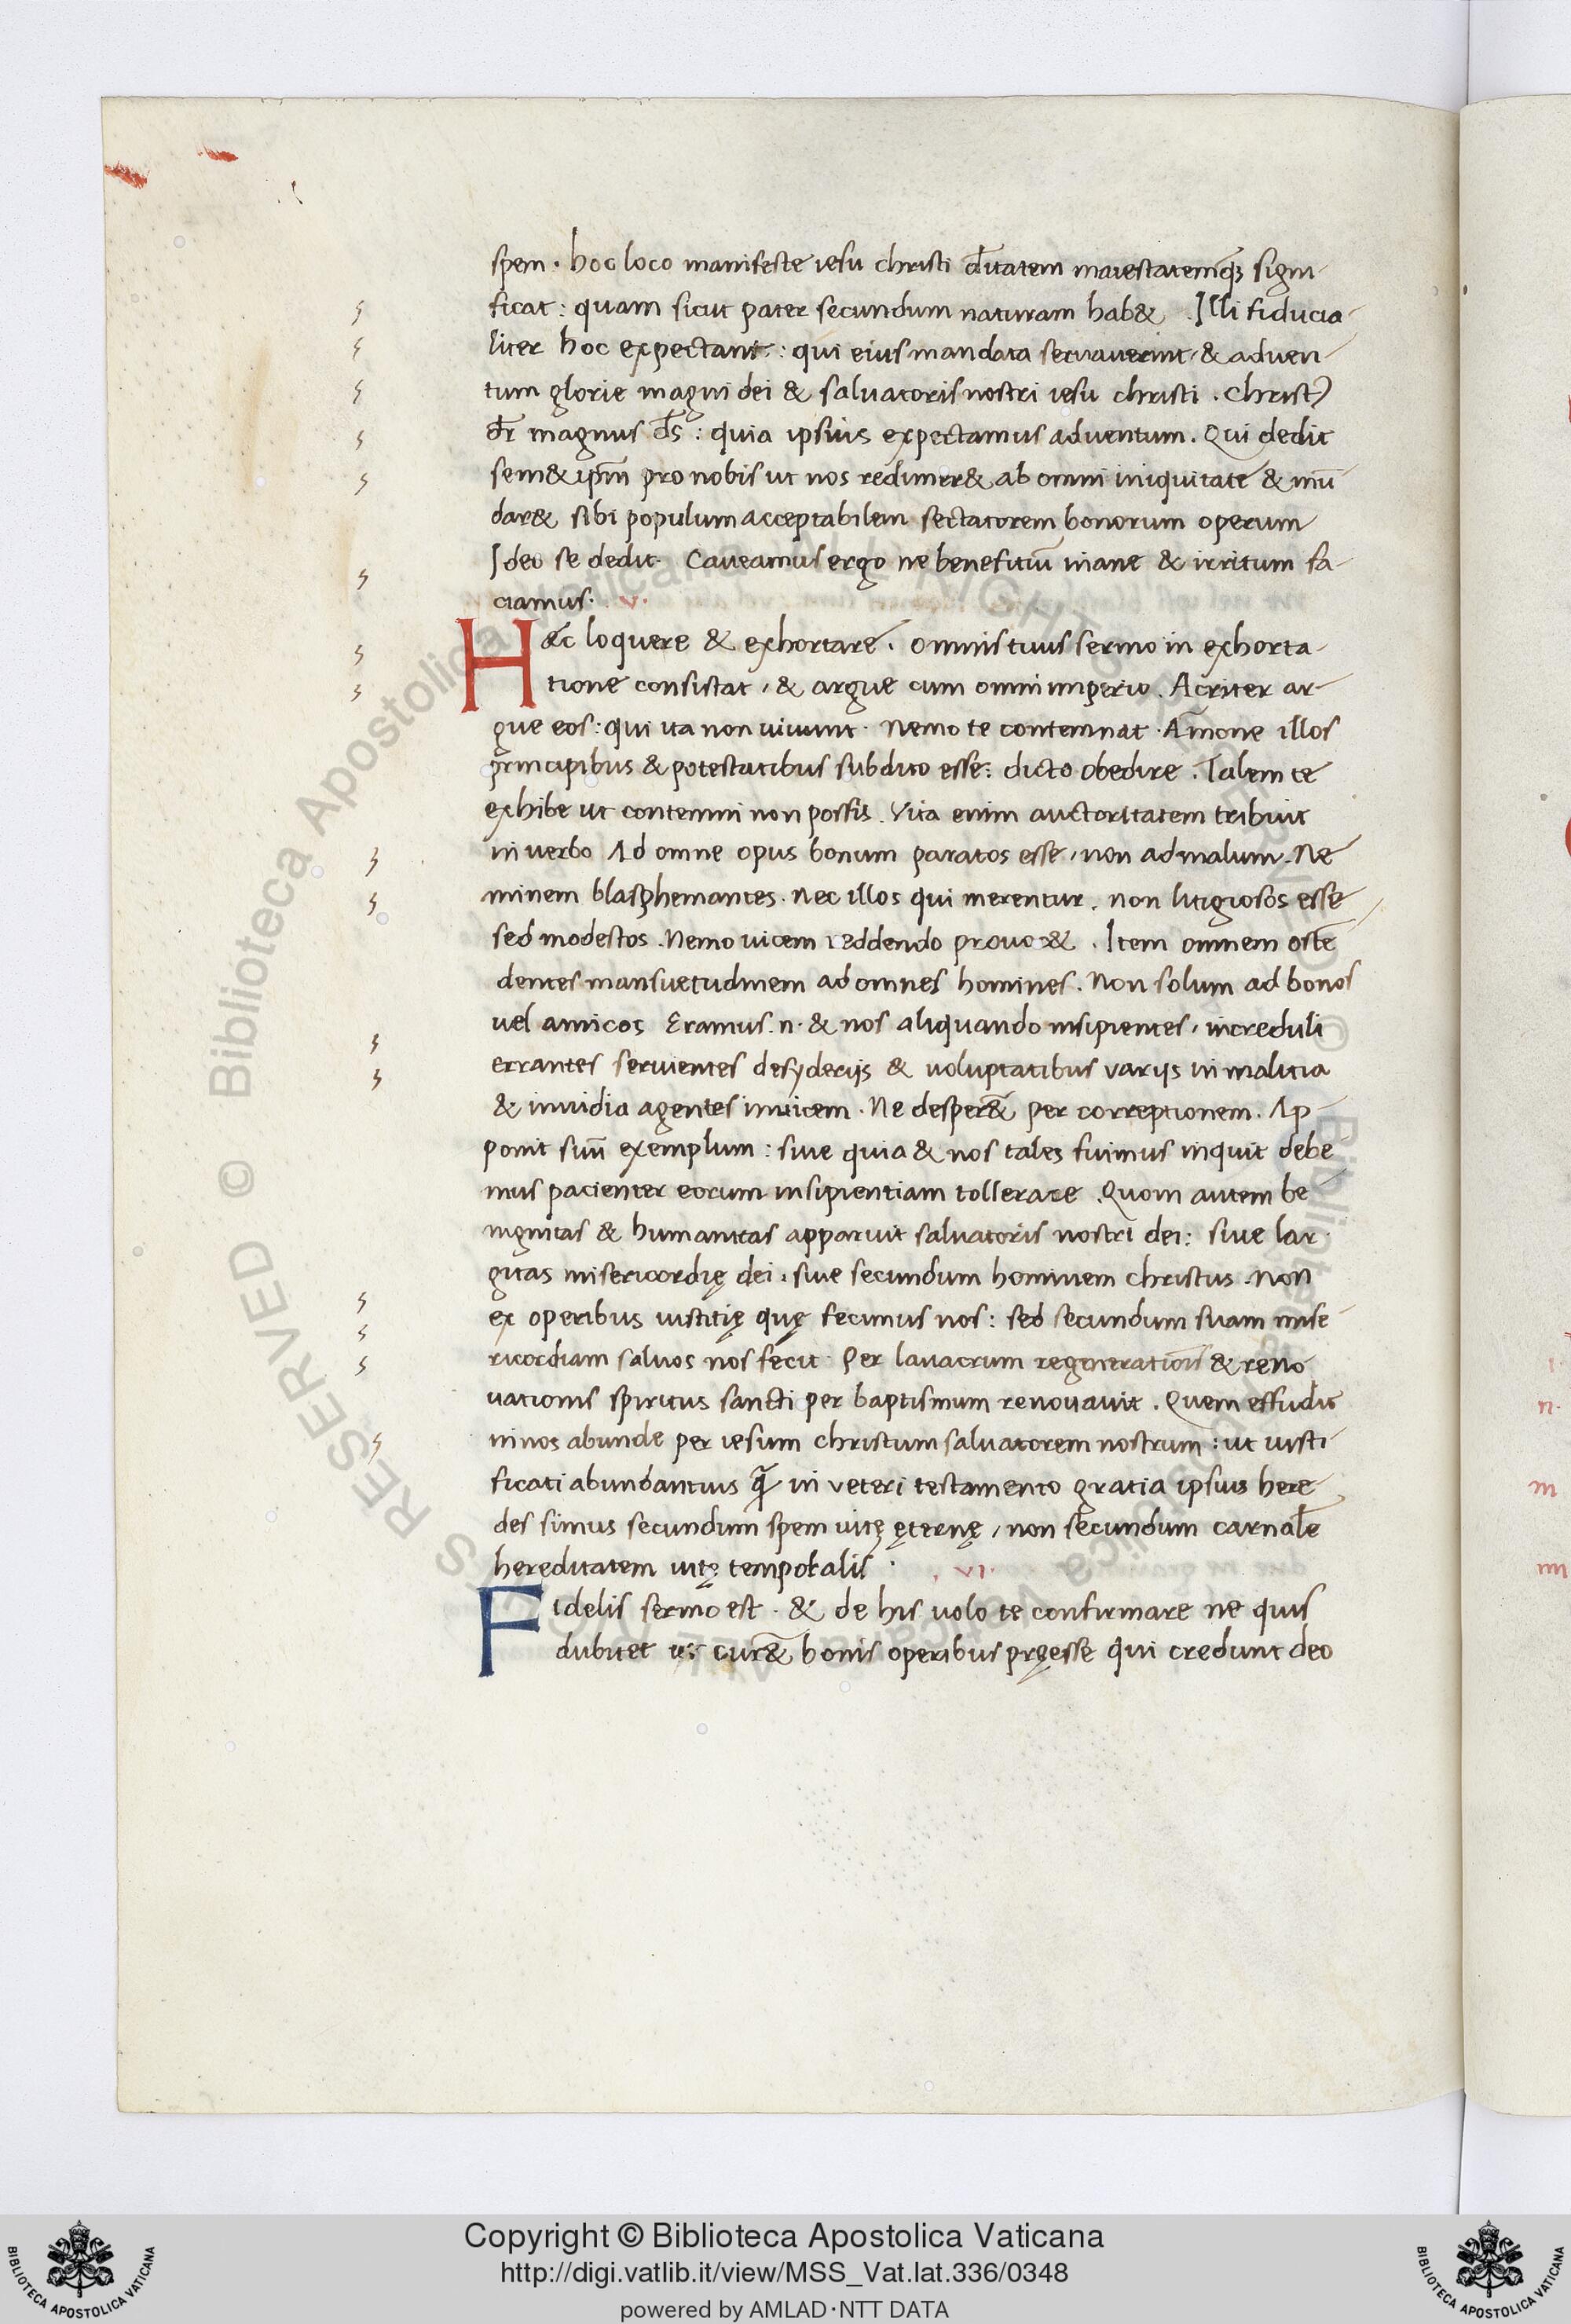 spem · hoc loco manifeste iesu christi d̄itatem maiestatemq̄ꝫ signi-
ficat : quam sicut pater secundum naturam hab& . Illi fiducia-
liter hoc expectant : qui eius mandata servaverint , & adven-
tum glorie magni dei & salvatoris nostri iesu christi . Christꝰ
dr̄ magnus ds̄ : quia ipsius expectamus adventum . Qui dedit
sem& ip̄m pro nobis ut nos redimer& ab omni iniquitate & mū
dar& sibi populum acceptabilem sectatorem bonorum operum
Ideo se dedit . Caveamus ergo ne benefitiū inane & irritum fa-
ciamus . v .
Hęc loquere & exhortare . omnis tuus sermo in exhorta-
tione consistat , & argue cum omni imperio . Acriter ar-
gue eos : qui ita non vivunt . Nemo te contemnat . Am̄one illos
principibus & potestatibus subdito esse : dicto obedire . Talem te
exhibe ut contemni non possis . Vita enim auctoritatem tribuit
in verbo Ad omne opus bonum paratos esse , non ad malum . Ne
minem blasphemantes . Nec illos qui merentur . non litigiosos esse
sed modestos . Nemo vicem reddendo provoc& . Item omnem ostē
dentes mansuetudinem ad omnes homines . Non solum ad bonos
vel amicos Eramus . n . & nos aliquando insipientes , increduli
errantes servientes desyderijs & voluptatibus varijs in malitia
& invidia agentes invicem . Ne desper&̄ per correptionem . Ap-
ponit suū exemplum : sive quia & nos tales fuimus inquit debe
mus pacienter eorum insipientiam tollerare . Quom autem be
nignitas & humanitas apparuit salvatoris nostri dei : sive lar
gitas misericordię dei , sive secundum hominem christus . Non
ex operibus iustitię quę fecimus nos : sed secundum suam mise
ricordiam salvos nos fecit . Per lavacrum regenerationis & reno
vationis spiritus sancti per baptismum renovavit . Quem effudit
in nos abunde per iesum christum salvatorem nostrum : ut iusti
ficati abundantius q̄ in veteri testamento gratia ipsius here-
des simus secundum spem vitę ęternę , non secundum carnalē
hereditatem vitę temporalis . . vi .
Fidelis sermo est . & de his volo te confirmare ne quis
dubitet ut cur&̄ bonis operibus pręesse qui credunt deo
© Biblioteca Apostolica Vaticana ALL RIGHTS RESERVED
Copyright © Biblioteca Apostolica Vaticana
http://digi.vatlib.it/view/MSS_Vat.lat.336/0348
powered by AMLAD·NTT DATA
BIBLIOTECA APOSTOLICA VATICANA
BIBLIOTECA APOSTOLICA VATICANA